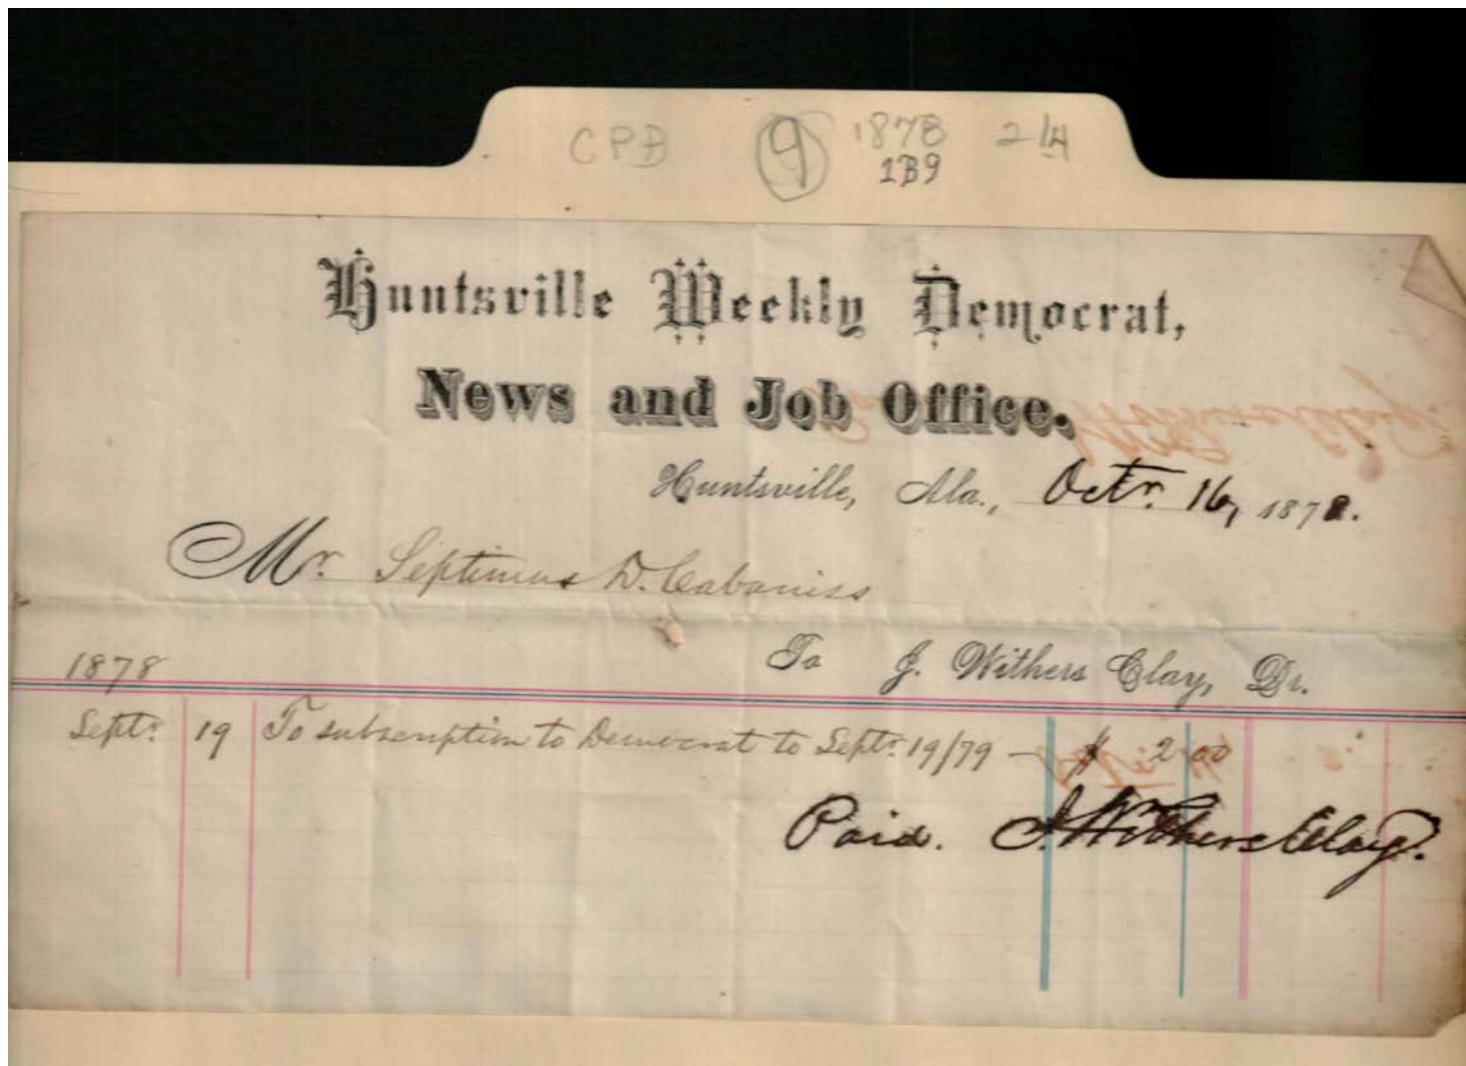 CPB 9 1878 2/4
1B9
Huntsville Weekly Democrat,
News and Job Office.
Huntsville, Ala., Octr. 16, 1878.
Mr. Septimus D. Cabaniss
To J. Withers Clay, Dr.
1878
Septr. 19 To subscription to Democrat to Septr. 19/79 — $ 2 00
Paid. J. Withers Clay.